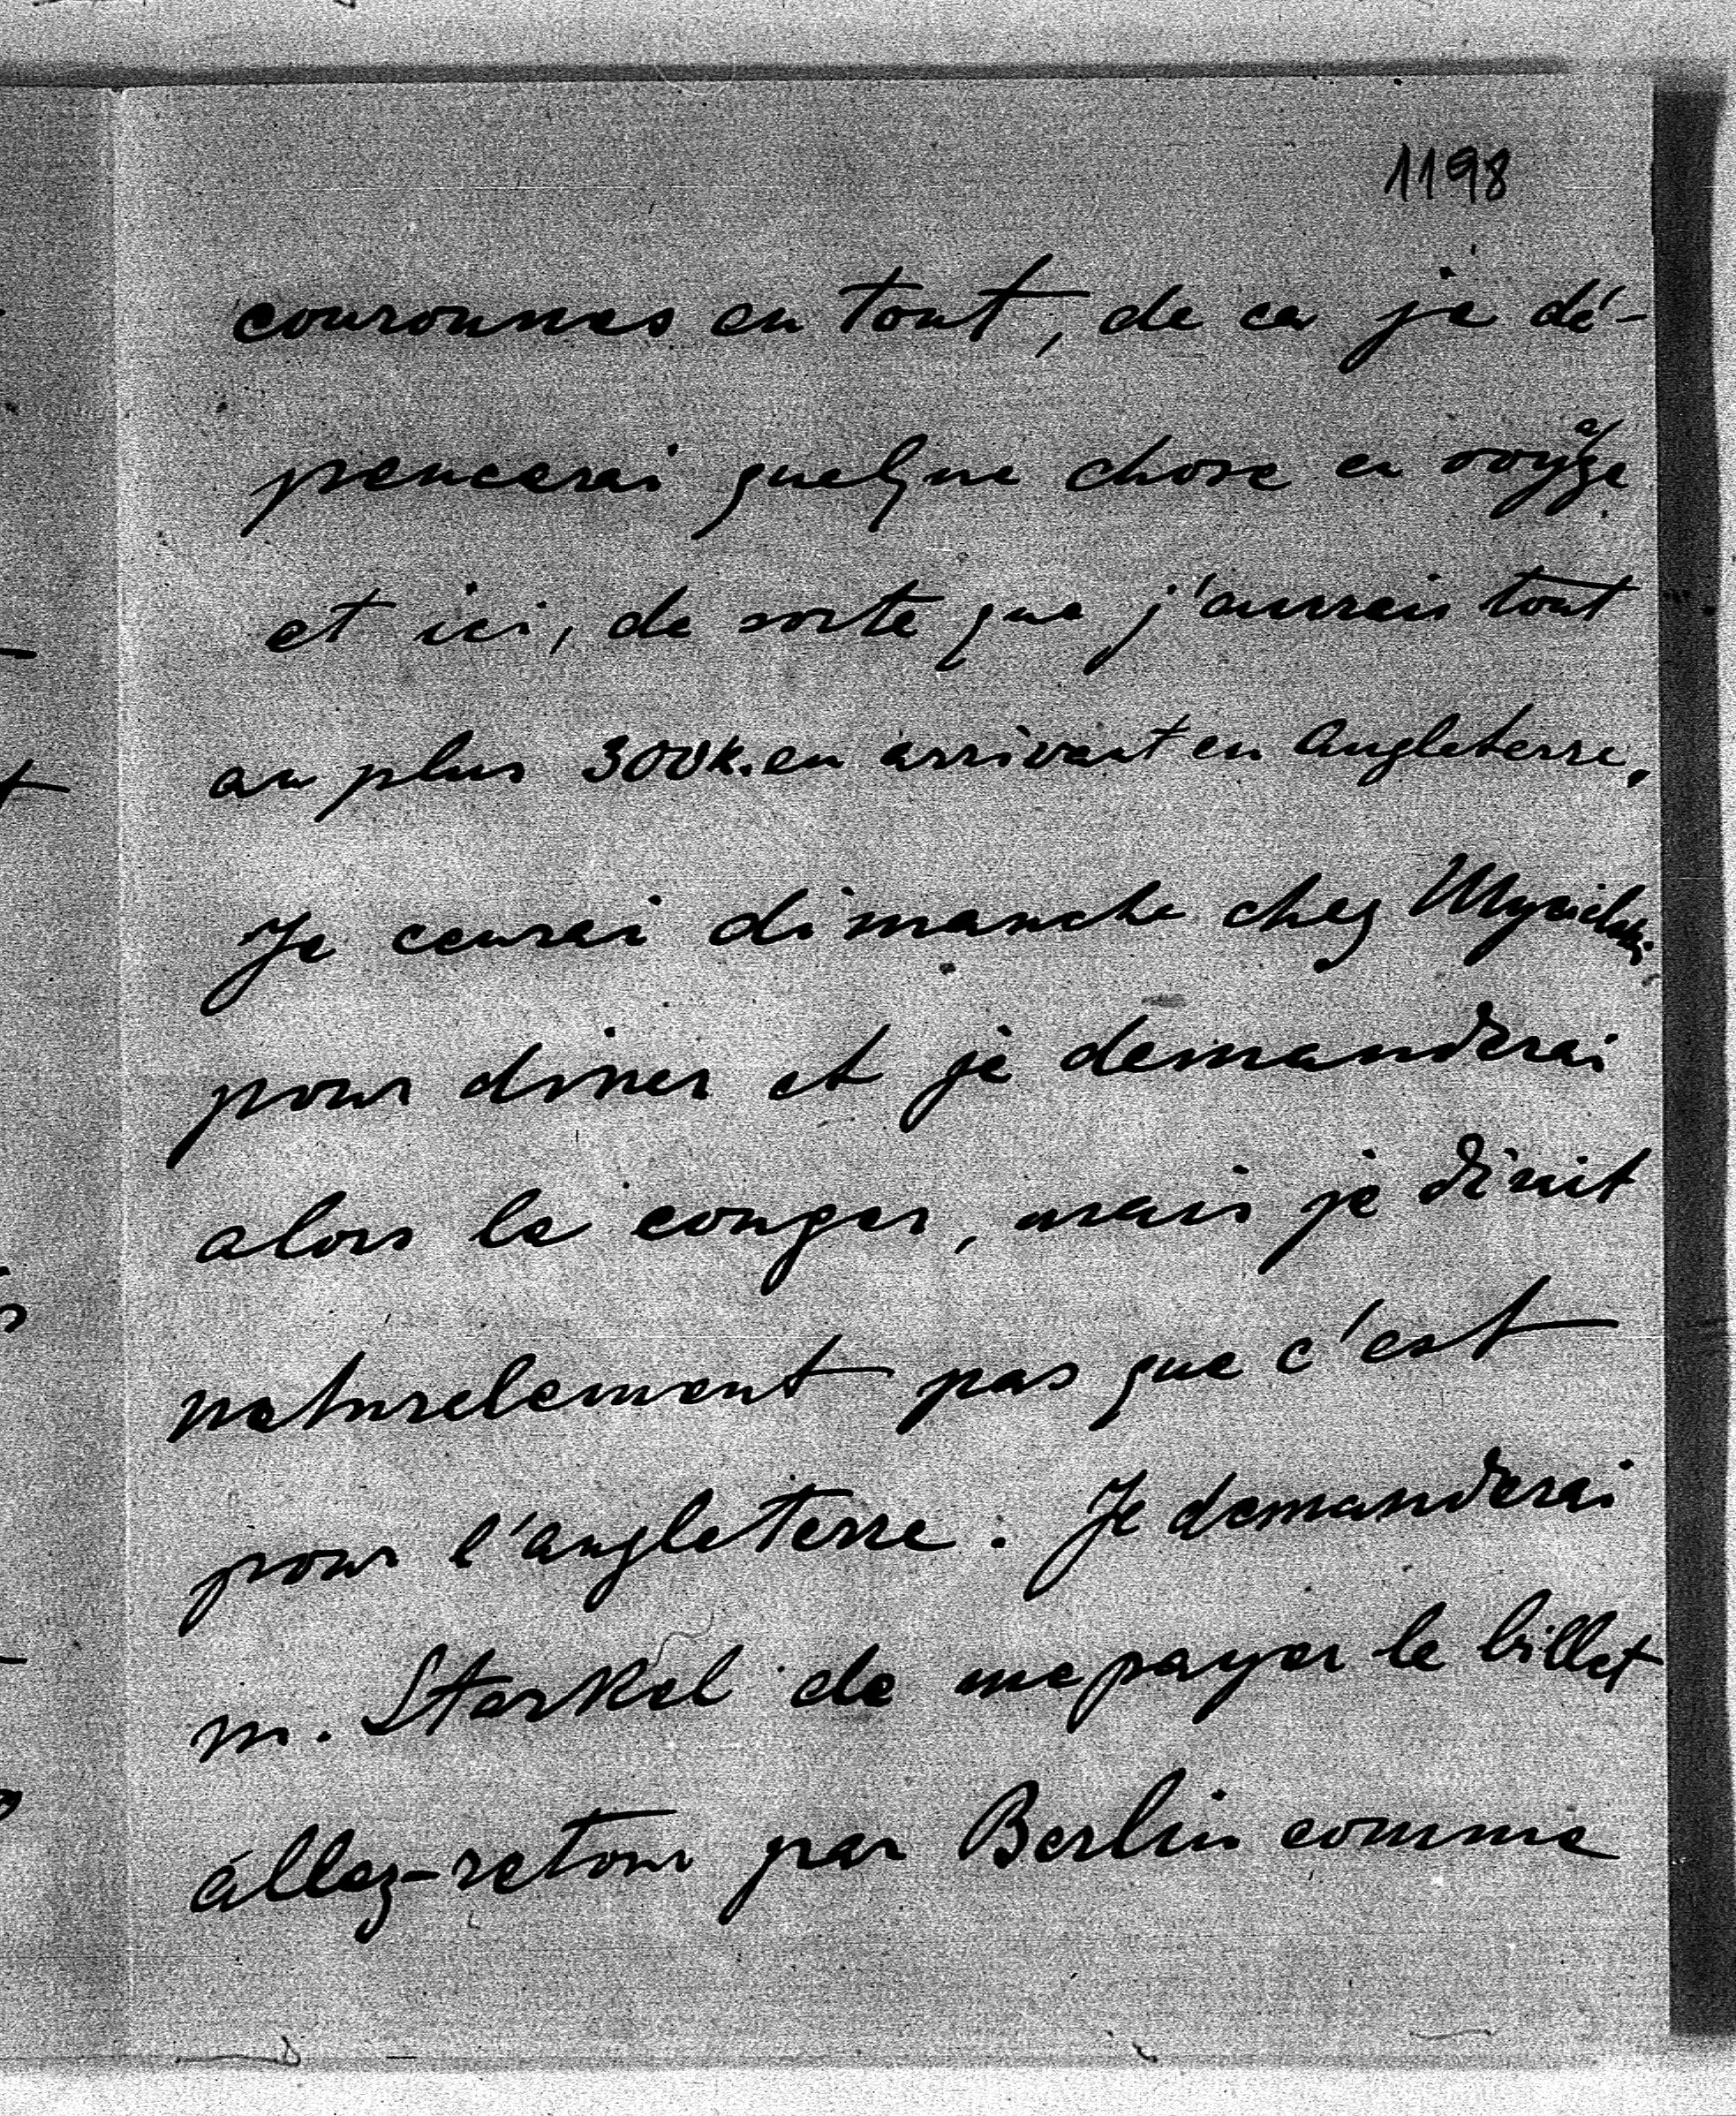 1198
couronnes en tout, de ca je dé-
pencerai quelque chose en voyage
et ici, de sorte que j'aurrais tout
au plus 300k. en arrivant en Angleterre.
Je cerrai dimanche chez
pour diner et je demanderai
alors le conger, mais je
naturelement pas que c'est
pour l'angleterre. Je demanderai
m. Starkel de me payer le billet
allez-retour par Berlin comme